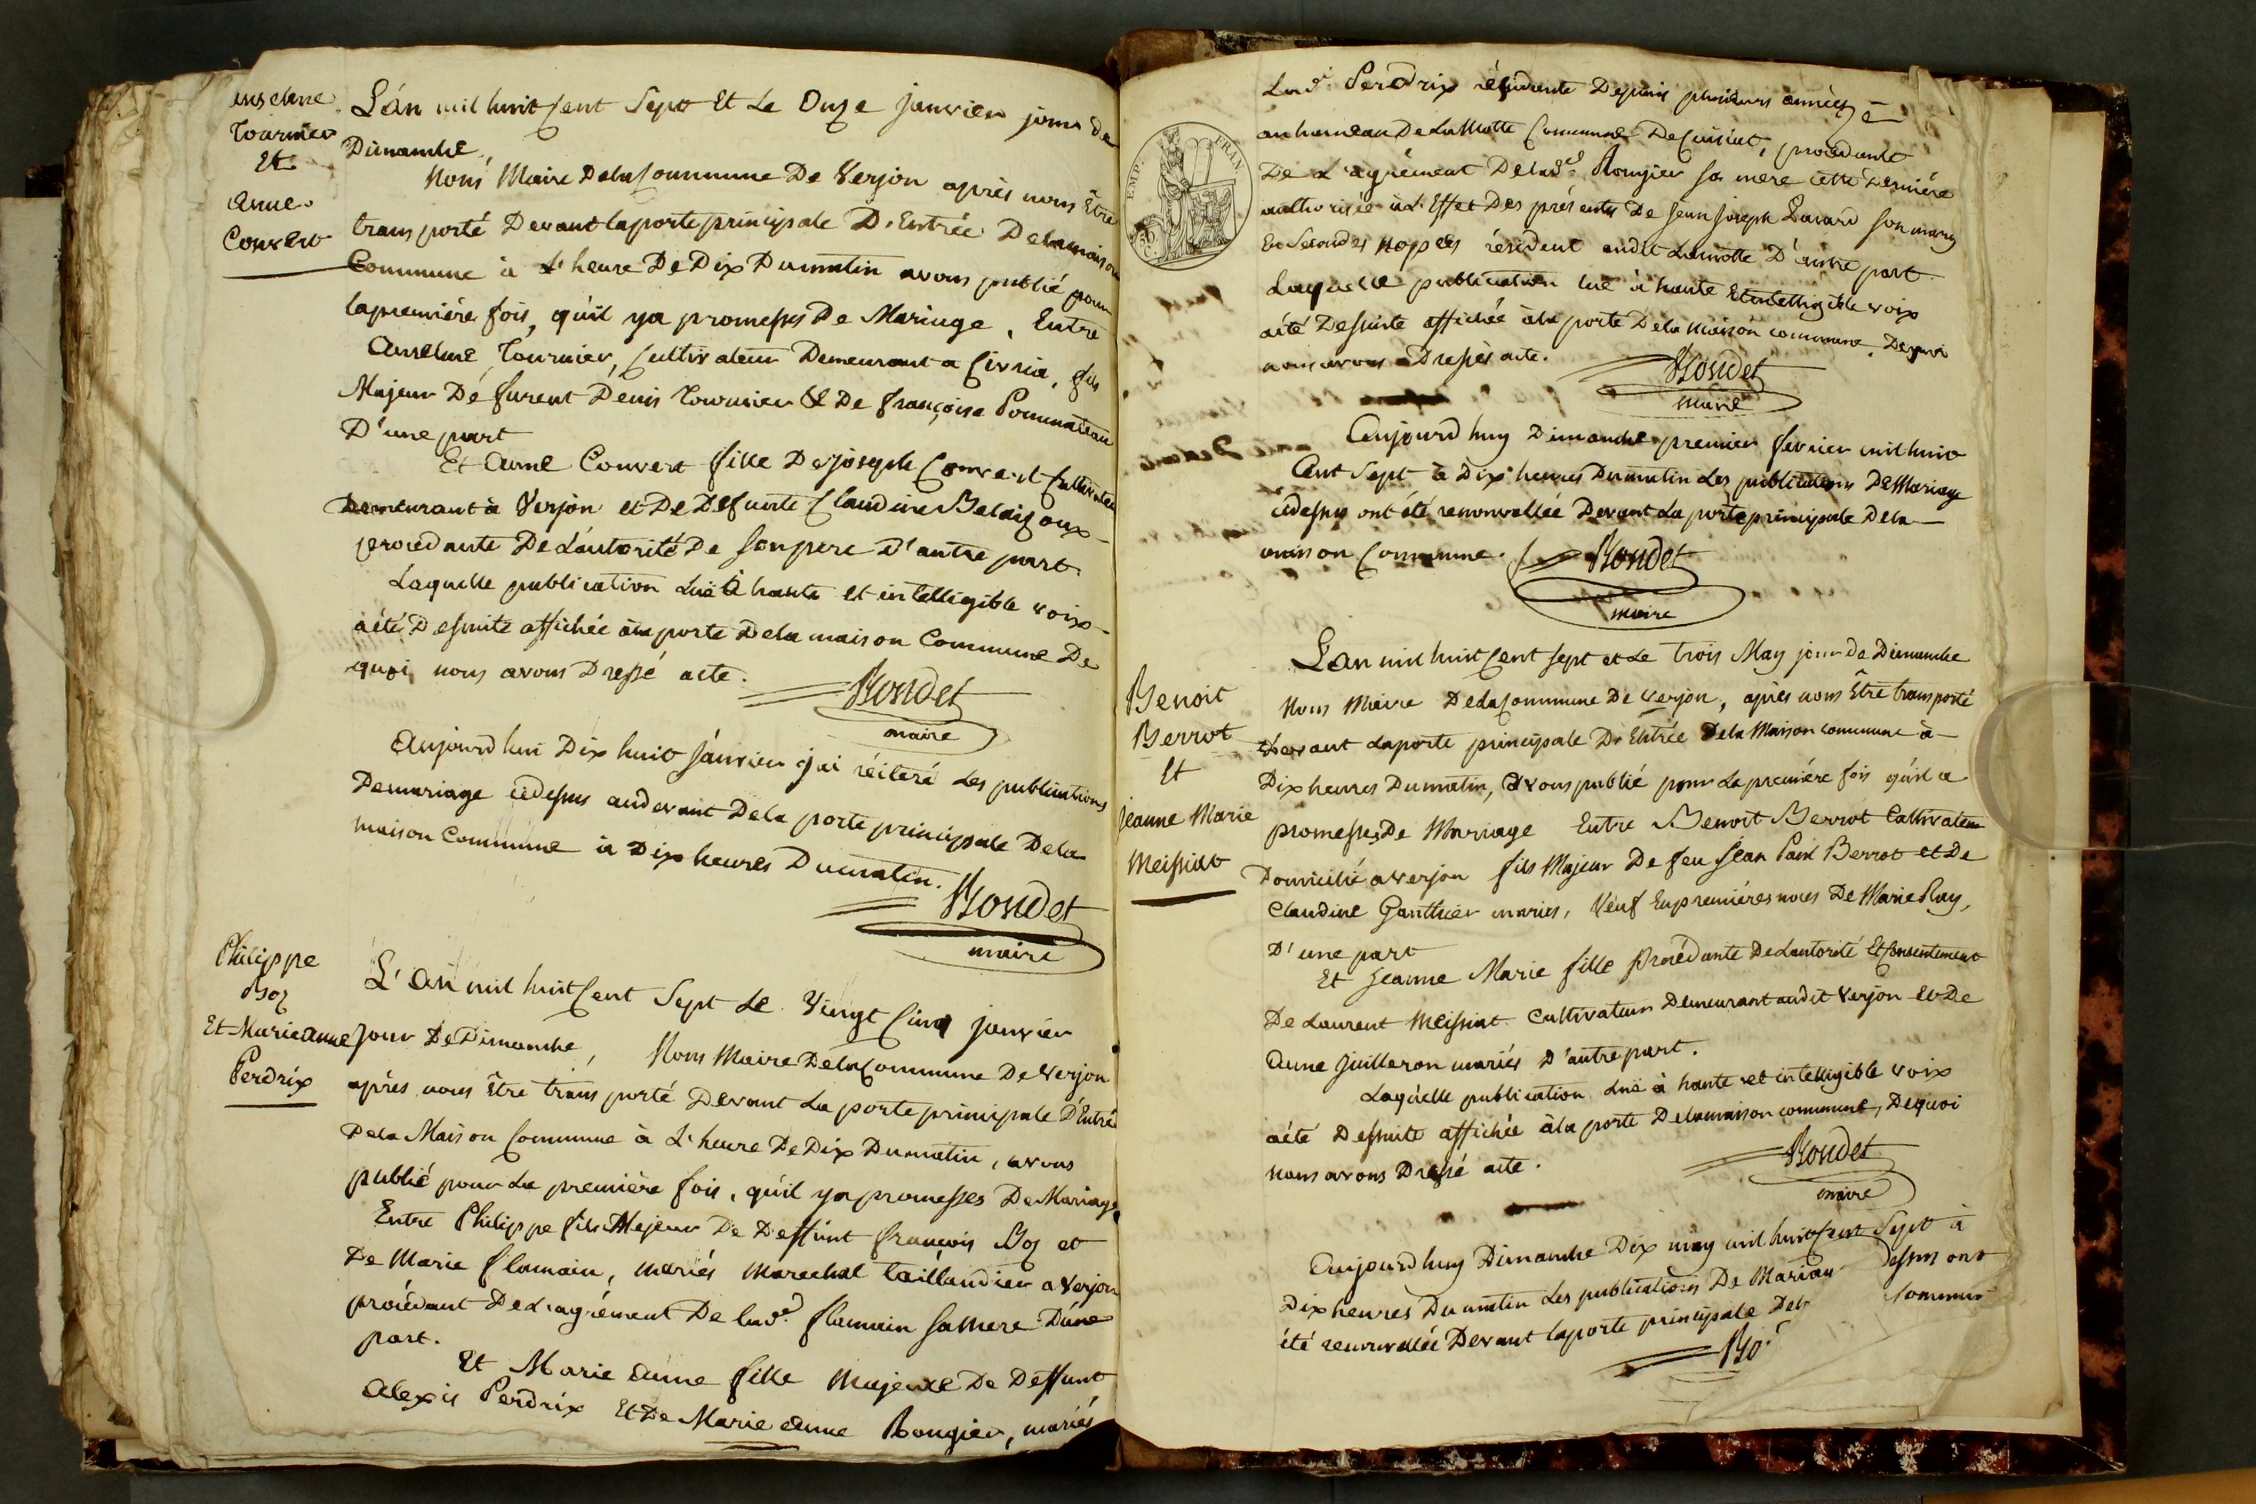 Anselme
Tournier
Et
Anne
Convert
L'an mil huit Cent Sept Et Le Onze janvier jour de
Dimanche,
Nous Maire De la Commune De Verjon après nous Être
transporté Devant la porte principale D'Entrée De la maison
Commune à L'heure De Dix Du matin avons publié pour
la premiére fois, qu'il ya promesses De Mariage, Entre
Anselme Tournier, Cultivateur Demeurant a Civria, fils
Majeur Dé furent Denis Tournier & De françoise Pommateau
D'une part
Et Anne Convert fille De joseph Convert Cultivateur
Demeurant à Verjon et De Defunte Claudine Balaizoux
procedante De L'autorité De son pere D'autre part.
Laquelle publication Luë à haute et intelligible voix
a été De suite affichée à la porte De la maison Commune De
quoi nous avons Dressé acte.
Rondet
maire
Aujourd hui Dix huit Janvier j'ai réiteré Les publications
De mariage cidessus au devant De la porte principale De la
maison Commune à Dix heures Du matin.
Rondet
maire
Philippe
Boz
Et Marie anne
Perdrix
L'An mil huit Cent Sept Le Vingt Cinq janvier
Jour De Dimanche, Nous Maire De la Commune De Verjon
après nous Être transporté Devant La porte principale D'Entrée
De la Maison Commune à L'heure De Dix Du matin, avons
publié pour La première fois, qu'il ya promesses De Mariage,
Entre Philippe fils Majeur De Deffunt françois Boz et
De Marie flamain, mariés Marechal taillandier a Verjon
procédant De L'agrément De lad.e flamain sa Mere D'une
part.
Et Marie Anne fille Majeure De Deffunt
Alexis Perdrix Et De Marie Anne Rougier, mariés
EMP. FRAN.
Lad.e Perdrix résidente Depuis plusieurs années
au hameau De La Motte Commune De Cuisiat, procedante
De L'agrément De lad.e Rougier sa mere cette Derniére
authorisée à L'Effet Des présentes De Jean Joseph Lavard son mary
En Secondes nopces résident audit Lamotte D'autre part
Laquelle publication lue à haute Et intelligible voix
a été De suite affichée à la porte De la maison commune, De quoi
nous avons Dressé acte.
Rondet
maire
Aujourd huy Dimanche premier fevrier mil huit
Cent Sept à Dix heures Du matin Les publications De Mariage
cidessus ont été renouvellée Devant La porte principale De la
maison Commune. Rondet
maire
Benoit
Berrot
Et
Jeanne Marie
Meissiat
L'an mil huit Cent sept et Le trois May jour De Dimanche
Nous Maire De la Commune De Verjon, après nous Être transporté
Devant La porte principale D'Entrée De la Maison commune à
Dix heures Du matin, avons publié pour La premiére fois qu'il a
promesses De Mariage Entre Benoit Berrot Cultivateur
Domicilié a Verjon fils Majeur De feu Jean Paul Berrot et De
Claudine Ganthier mariés, Veuf En premiéres noces De Marie Ray,
D'une part
Et Jeanne Marie fille Procédante De L'autorité Et Consentement
De Laurent Meissiat Cultivateur Demeurant audit Verjon et De
Anne Juilleron mariés D'autre part.
Laquelle publication Luë à haute et intelligible voix
a été De suite affichée à la porte De la maison commune, De quoi
nous avons Dressé acte.
Rondet
maire
Aujourd huy Dimanche Dix may mil huit Cent Sept à
Dix heures Du matin Les publications De Mariag dessus ont
été renouvellée Devant la porte principale De la Commune